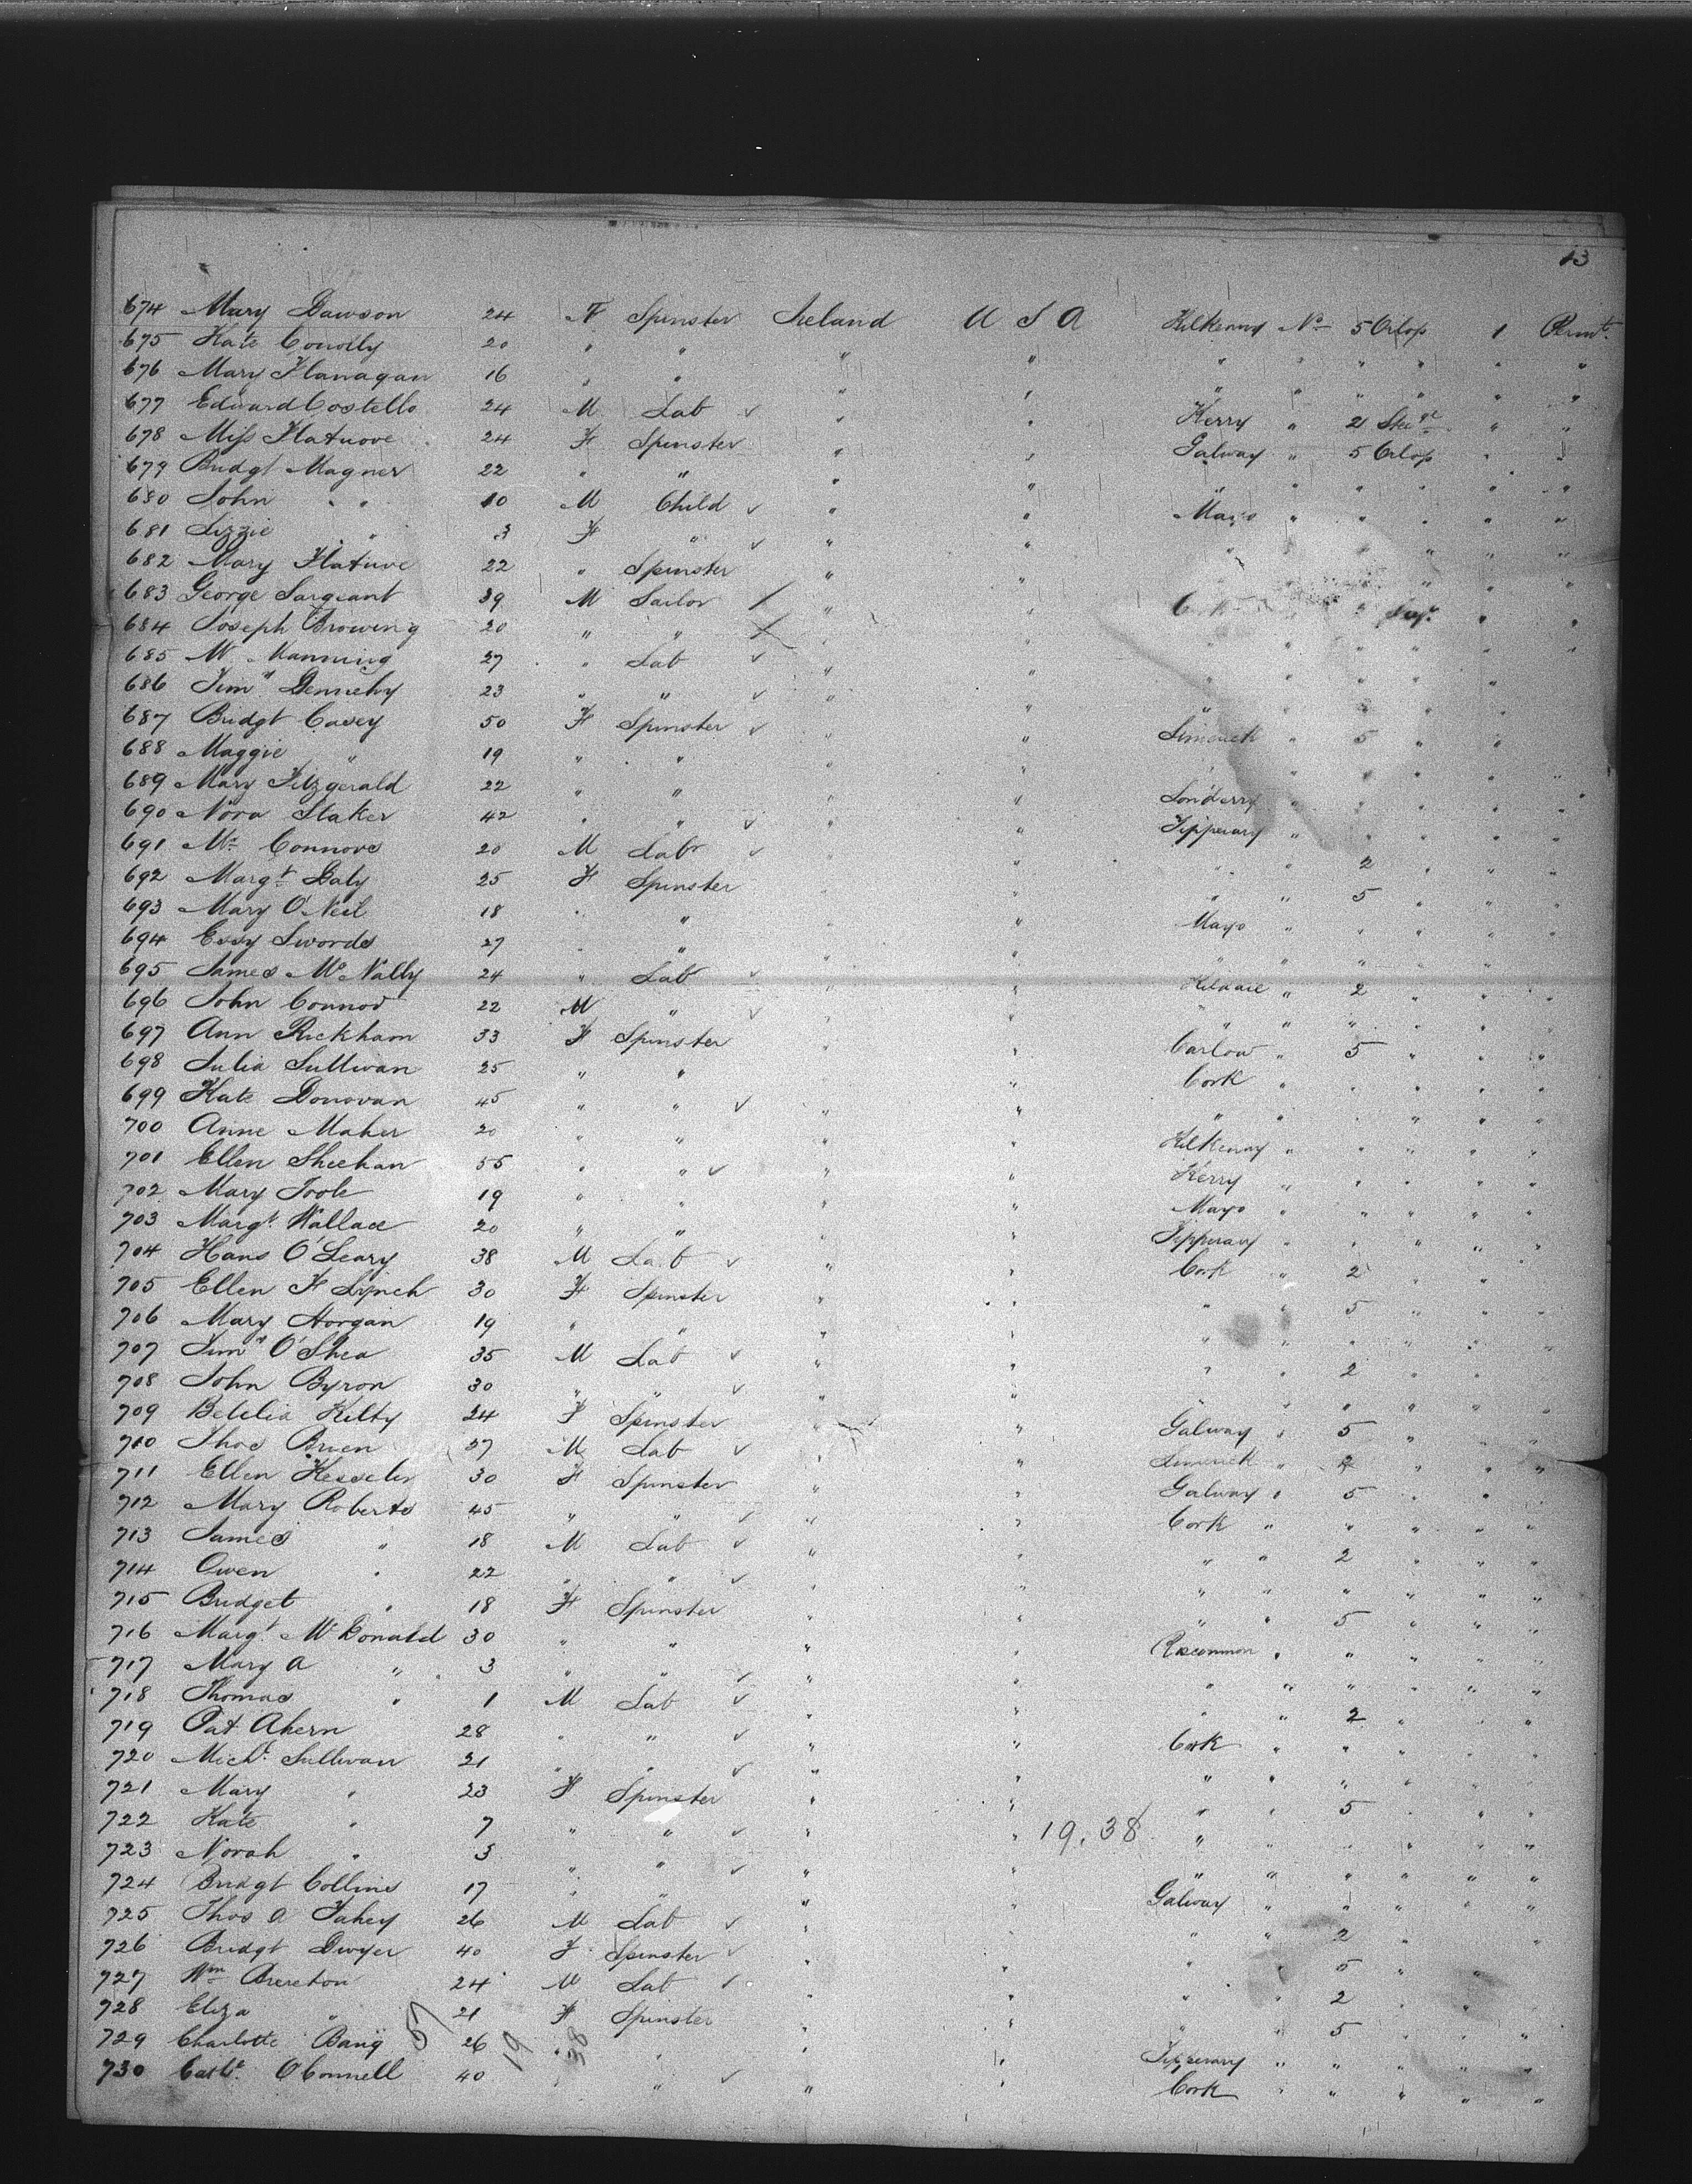 13
674 Mary Dawson 24 F Spinster Ireland U S A Kilkenny No 5 Orlop 1 Permt.
675 Kate Conolly 20 " " " " " " " " " "
676 Mary Flanagan 16 " " " " " " " " " "
677 Edward Costello 24 M Lab " " Kerry " 2 Steege " "
678 Miss Flatuove 24 F Spinster " " Galway " 5 Orlop " "
679 Bridgt Magner 22 " " " " " " " " " "
680 John " 10 M Child " " Mayo " " " " "
681 Lizzie " 3 F " " " " " " " " "
682 Mary 22 " Spinster " " " " " "
683 George Sargeant 39 M Sailor " " " " "
684 Joseph Browing 20 " " " " " " " " " "
685 M Manning 27 " Lab " " " " " " "
686 Timy Dennehy 23 " " " " " " " "
687 Bridgt Casey 50 F Spinster " " Limerick " 5 " "
688 Maggie " 19 " " " " " " " " " "
689 Mary Fitzgerald 22 " " " " Londerry " " " " "
690 Nora Staker 42 " " " " Tipperary " " " " "
691 Mc Connors 20 M Labr " " " " 2 " " "
692 Margt Daly 25 F Spinster " " " " 5 " " "
693 Mary O'Neil 18 " " " " Mayo " " " " "
694 Essy Swords 27 " " " " " " " " "
695 James McNally 24 " Lab " " Kildare " 2 " " "
696 John Connor 22 M " " " " " " " " "
697 Ann Rickham 33 F Spinster " " Carlow " 5 " " "
698 Julia Sullivan 25 " " " " Cork " " " " "
699 Kate Donovan 45 " " " " " " " " " "
700 Anne Maher 20 " " " " Kilkenny " " " " "
701 Ellen Sheehan 55 " " " " Kerry " " " " "
702 Mary Toole 19 " " " " Mayo " " " " "
703 Margt. Wallace 20 " " " " Tipperary " " " " "
704 Hans O'Leary 38 M Lab " " Cork " 2 " "
705 Ellen F Lynch 30 F Spinster " " " " 5 " " "
706 Mary Horgan 19 " " " " " " " " " "
707 Timy O'Shea 35 M Lab " " " " 2 " " "
708 John Byron 30 " " " " " " " " " "
709 Kilty 24 F Spinster " " Galway " 5 " " "
710 Thos Brien 37 M Lab " " Limerick " 2 " " "
711 Ellen Kesseler 30 F Spinster " " Galway " 5 " " "
712 Mary Roberts 45 " " " " Cork " " " " "
713 James " 18 M Lab " " " " 2 " " "
714 Owen " 22 " " " " " " " " " "
715 Bridget " 18 F Spinster " " " " 5 " " "
716 Margt. McDonald 30 " " " " Roscommon " " " " "
717 Mary A " 3 " " " " " " " " " "
718 Thomas " 1 M Lab " " " " 2 " " "
719 Pat Ahern 28 " " " " Cork " " " " "
720 Michl. Sullivan 21 " " " " " " " " " "
721 Mary " 23 F Spinster " " " " 5 " " "
722 Kate " 7 " " " " 19.38 " " " " " "
723 Norah " 3 " " " " " " " " " "
724 Bridgt Collins 17 " " " " Galway " " " " "
725 Thos A Fahey 26 M Lab " " " " 2 " "
726 Bridgt Dwyer 40 F Spinster " " " " 5 "
727 Wm Brereton 24 M Lab " " " " 2 " "
728 Eliza " 21 F Spinster " " " " 5 " " "
729 Charlotte 26 " " " " Tipperary " " " " "
730 O'Connell 40 " " " " Cork " " " " "
57 19 38